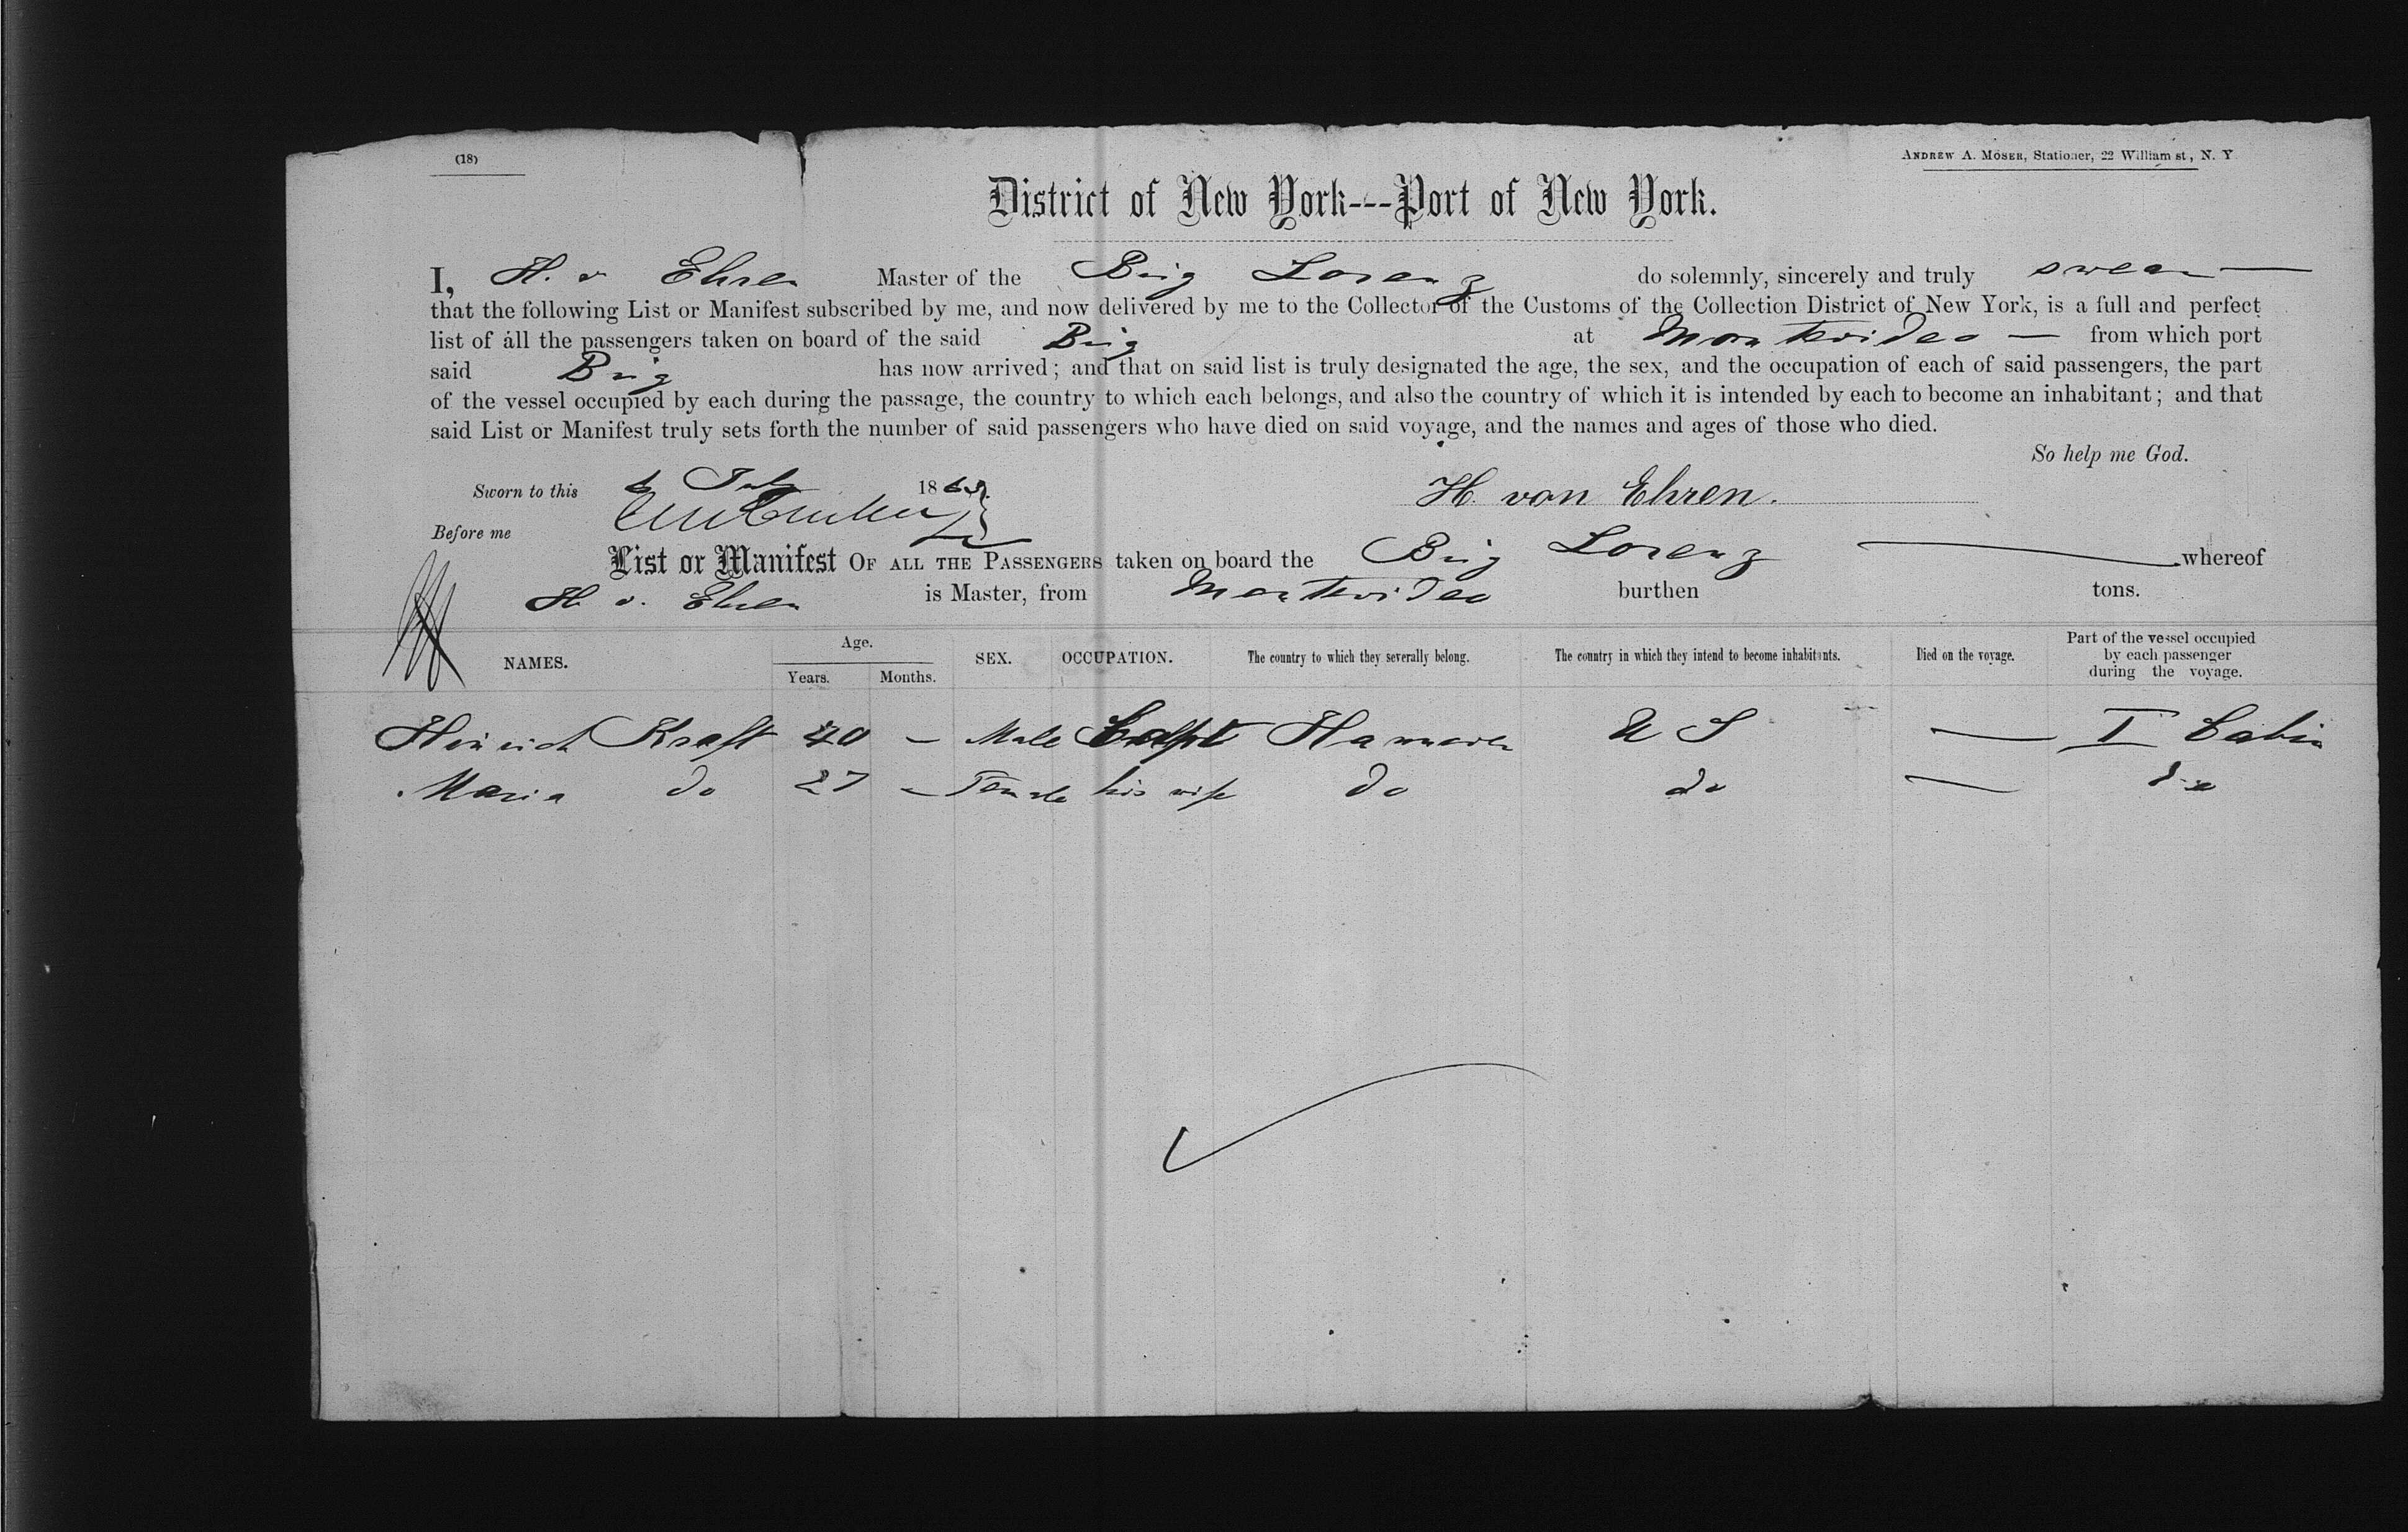 (18)
ANDREW A. MOSER, Stationer, 22 William st, N. Y
District of New York---Port of New York.
I, H. v Ehren Master of the Brig Lorenz do solemnly, sincerely and truly swear
that the following List or Manifest subscribed by me, and now delivered by me to the Collector of the Customs of the Collection District of New York, is a full and perfect
list of all the passengers taken on board of the said Brig at Montevideo — from which port
said Brig has now arrived; and that on said list is truly designated the age, the sex, and the occupation of each of said passengers, the part
of the vessel occupied by each during the passage, the country to which each belongs, and also the country of which it is intended by each to become an inhabitant; and that
said List or Manifest truly sets forth the number of said passengers who have died on said voyage, and the names and ages of those who died.
So help me God.
Sworn to this 6 July 186
H. von Ehren.
Before me
List or Manifest OF ALL THE PASSENGERS taken on board the Brig Lorenz whereof
H. v. Ehren is Master, from Montevideo burthen tons.
NAMES. Age. Years. Months. SEX. OCCUPATION. The country to which they severally belong. The country in which they intend to become inhabitants. Died on the voyage. Part of the vessel occupied by each passenger during the voyage.
Heinrich Kraft 40 — Male Capt Hannover U S — I Cabin
Maria do 27 — Female his wife do do — do